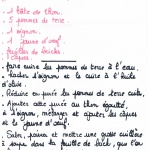 - 1 boîte de thon.
- 5 pommes de terre.
- 1 oignon.
- 1 jaune d'oeuf.
- feuilles de bricks
- câpres.
- faire cuire les pommes de terre à l'eau,
hacher l'oignon et le cuire à l'huile
d'olive.
- Réduire en purée les pommes de terre cuites,
- Ajouter cette purée au thon égoutté,
à l'oignon, mélanger et ajouter les câpres
et le jaune d'oeuf.
- Saler, poivrer et mettre une grosse cuillère
à soupe dans la feuille de brick, que l'on